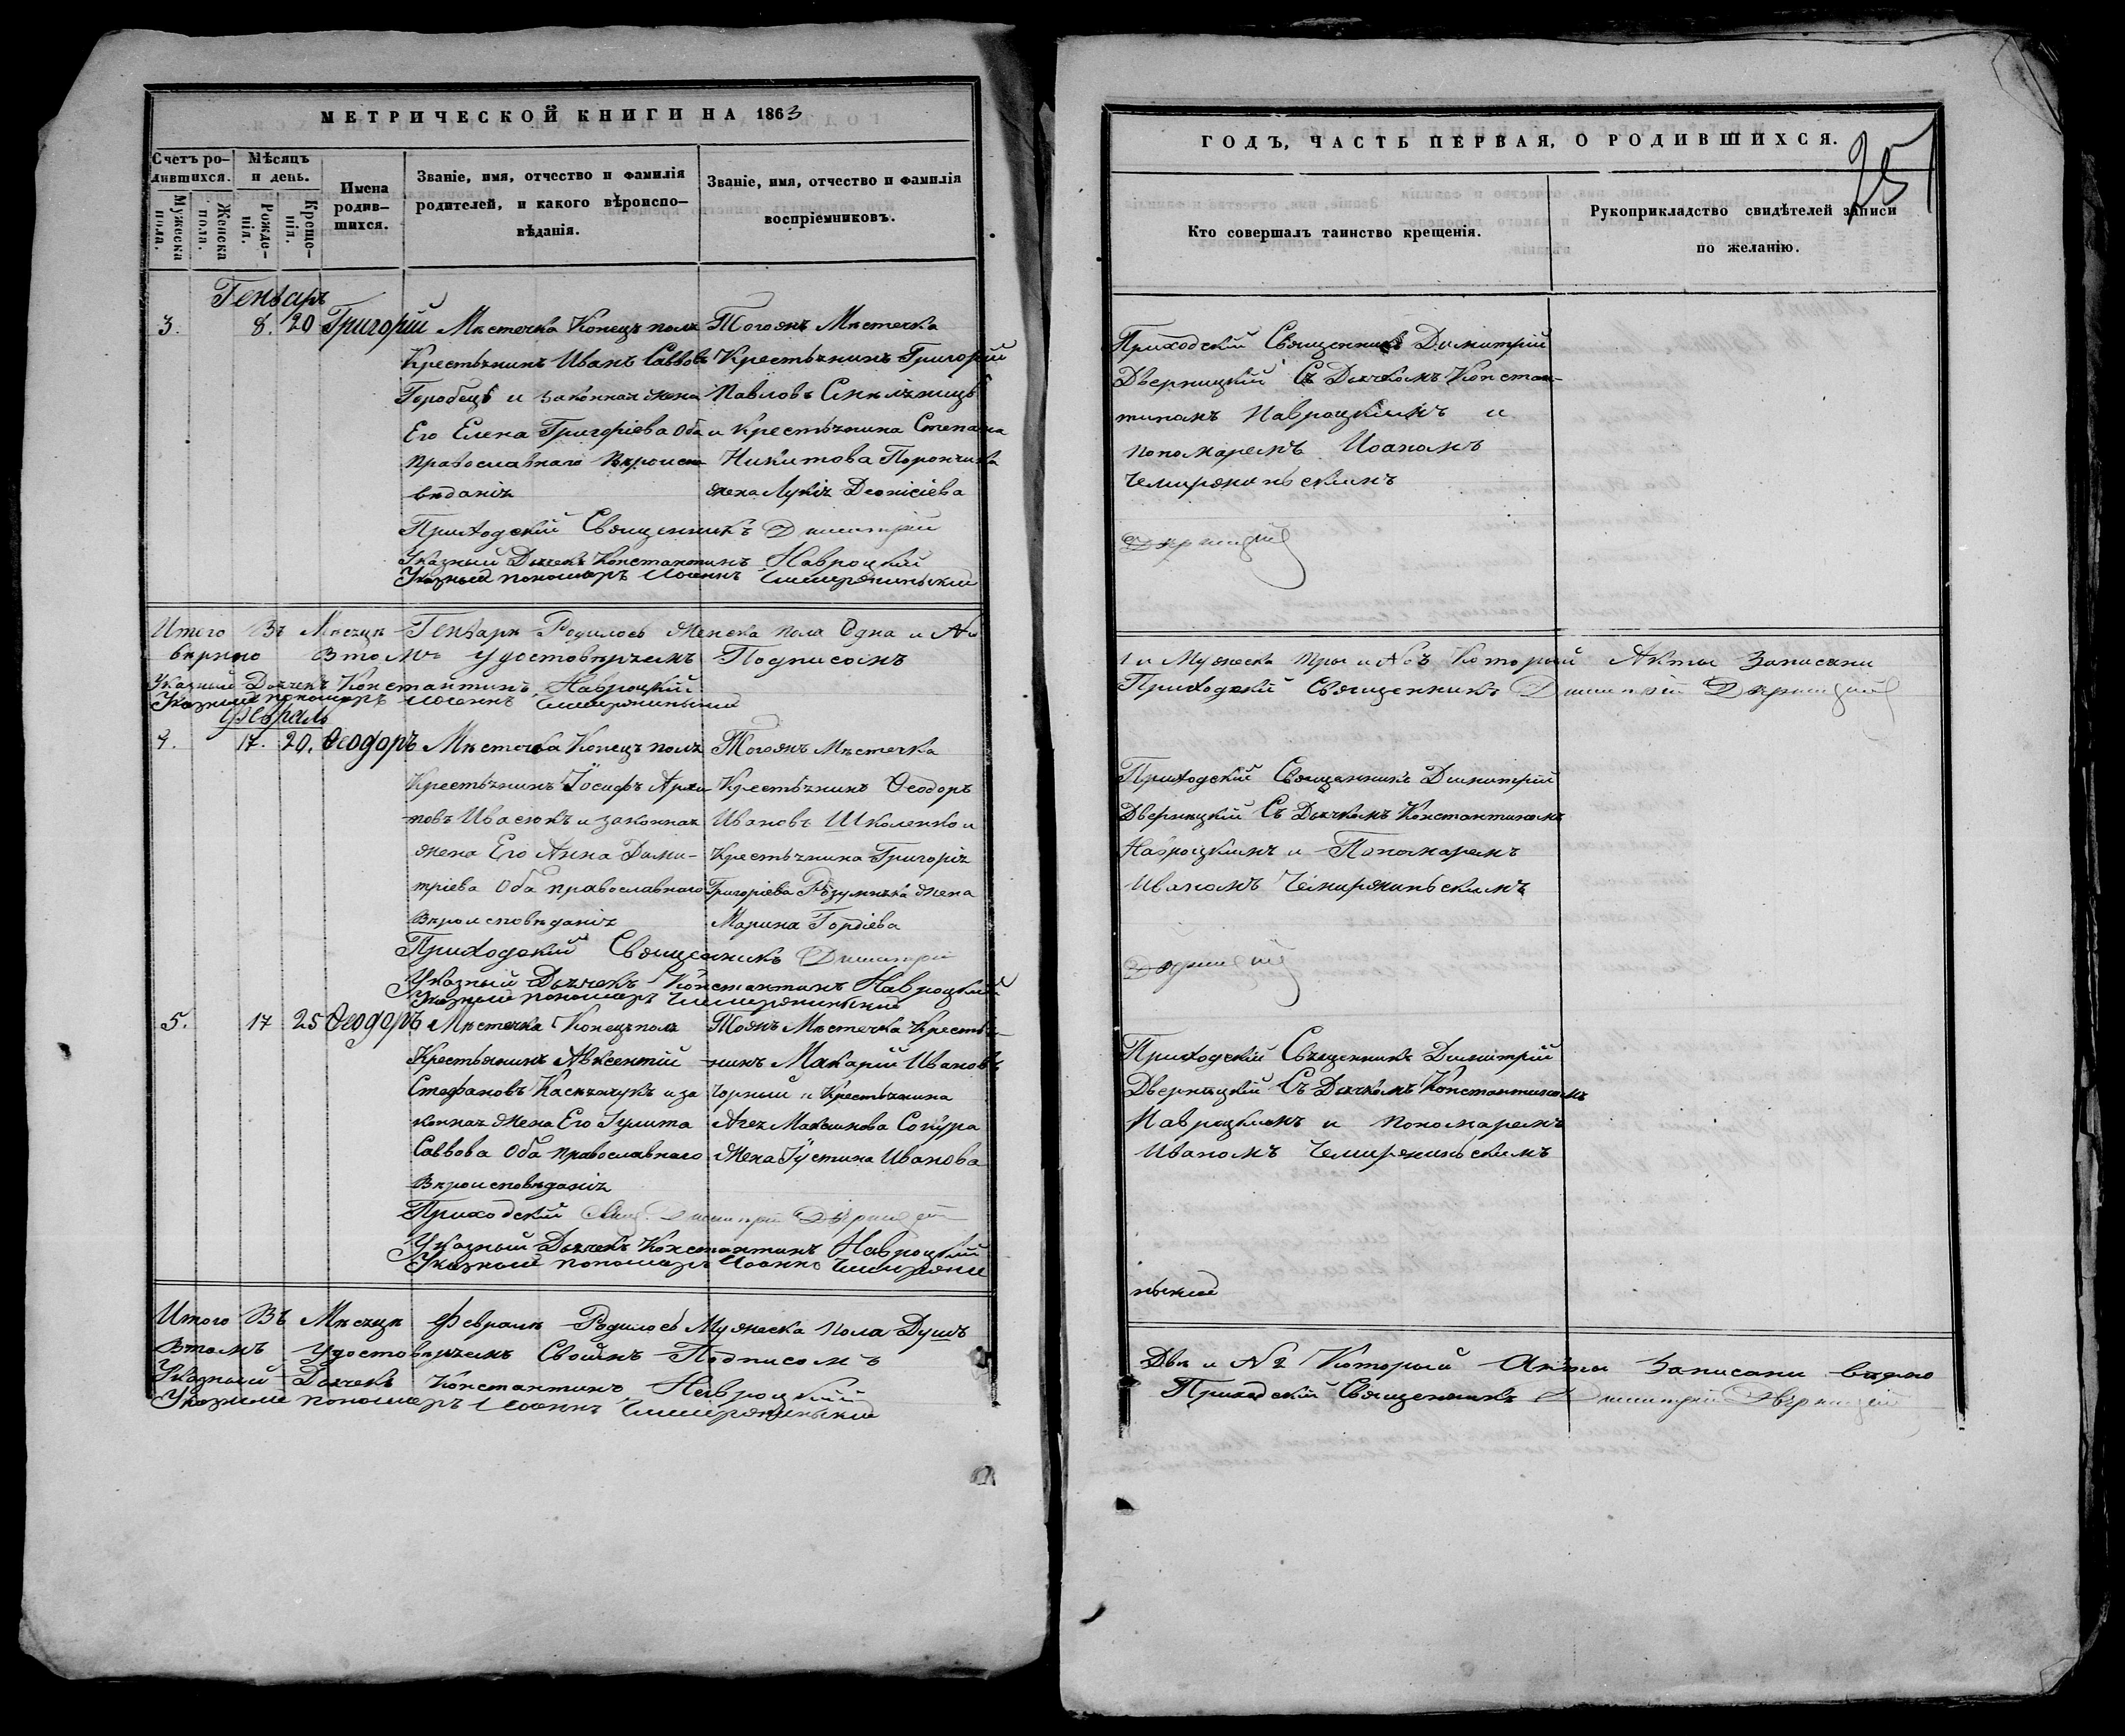 МЕТРИЧЕСКОЙ КНИГИ НА 1863
Счетъ ро-
дившихся.
Мужеска пола.
Женска пола.
Мѣсяцъ
и день.
Рожде-
нія.
Креще-
нія.
Имена
родив-
шихся.
Званіе, имя, отчество и фамилія
родителей, и какого вѣроиспо-
вѣданія.
Званіе, имя, отчество и фамилія
воспріемниковъ.
Генваръ
3. 8. 20 Григорій
Мѣстечка Конецъполя
Крестьянинъ Иванъ Саввовъ
Горобецъ и законная жена
Его Елена Григоріева Оба
православнаго Вѣроиспо
вѣданія
Тогожъ Мѣстечка
Крестьянинъ Григорій
Павловъ
и Крестьянина Степана
Никитова
жена Лукія Деонісіева
Приходскій Священникъ Димитрій
Указный Дьячекъ Константинъ Навроцкій
Указный пономаръ Іоаннъ Чемиржинський
Итого Въ Мѣсяцѣ Генварѣ Родилось женска пола Одна и №
вѣрно Втомъ удостовѣряемъ Подписомъ
Указный Дьячекъ Константинъ Навроцкій
Указный пономаръ Іоаннъ Чемиржинський
Февраль
4. 17. 20. Ѳеодоръ
Мѣстечка Конецъполя
Крестьянинъ Іосифъ Архи
повъ Ивасюкъ и законная
жена Его Анна Дими-
тріева Оба православнаго
Вѣроисповѣданія
Тогожъ Мѣстечка
Крестьянинъ Ѳеодоръ
Ивановъ Школенко и
Крестьянина Григорія
Григоріева жена
Марина Гордіева
Приходскій Священникъ Димитрій
Указный Дьячекъ Константинъ Навроцкій
Указный пономаръ Чемиржинський
5. 17 25 Ѳеодоръ
Мѣстечка Конецъполя
Крестьянинъ Авксентій
Стефановъ Касьянчукъ и за
конная жена Его Іулита
Саввова Оба православнаго
Вѣроисповѣданія
Тожъ Мѣстечка Крестья-
нинъ Макарій Ивановъ
Чорный и Крестьянина
жена Іустина Иванова
Приходскій Свящ. Димитрій Дверницкій
Указный Дьячекъ Константинъ Навроцкій
Указный пономаръ Іоаннъ Чемиржин
Итого Въ Мѣсяцѣ Февралѣ Родилось Мужеска пола Душъ
Втомъ удостовѣряемъ Своимъ Подписомъ
Указный Дьячекъ Константинъ Навроцкій
Указный пономаръ Іоаннъ Чемиржинський
ГОДЪ, ЧАСТЬ ПЕРВАЯ, О РОДИВШИХСЯ.
251
Кто совершалъ таинство крещенія.
Рукоприкладство свидѣтелей записи
по желанію.
Приходскій Священникъ Димитрій
Дверницкій Съ Дьячкомъ Констан-
тиномъ Навроцкимъ и
пономаремъ Иоаномъ
Чемиржинскимъ
Дверницкій
1 и Мужеска три и №3 Который Акты Записани
Приходскій Священникъ Димитрій Дверницкій
Приходскій Священникъ Димитрій
Дверницкій Съ Дьячкомъ Константиномъ
Навроцкимъ и Пономаремъ
Иваномъ Чемиржиньскимъ
Дверницкій
Приходскій Священникъ Димитрій
Дверницкій Съ Дьячкомъ Константиномъ
Навроцкимъ и пономаремъ
Иваномъ Чемиржиньскимъ
ський
Двѣ и №2 Который Акты Записани вѣрно
Приходскій Священникъ Димитрій Дверницкій